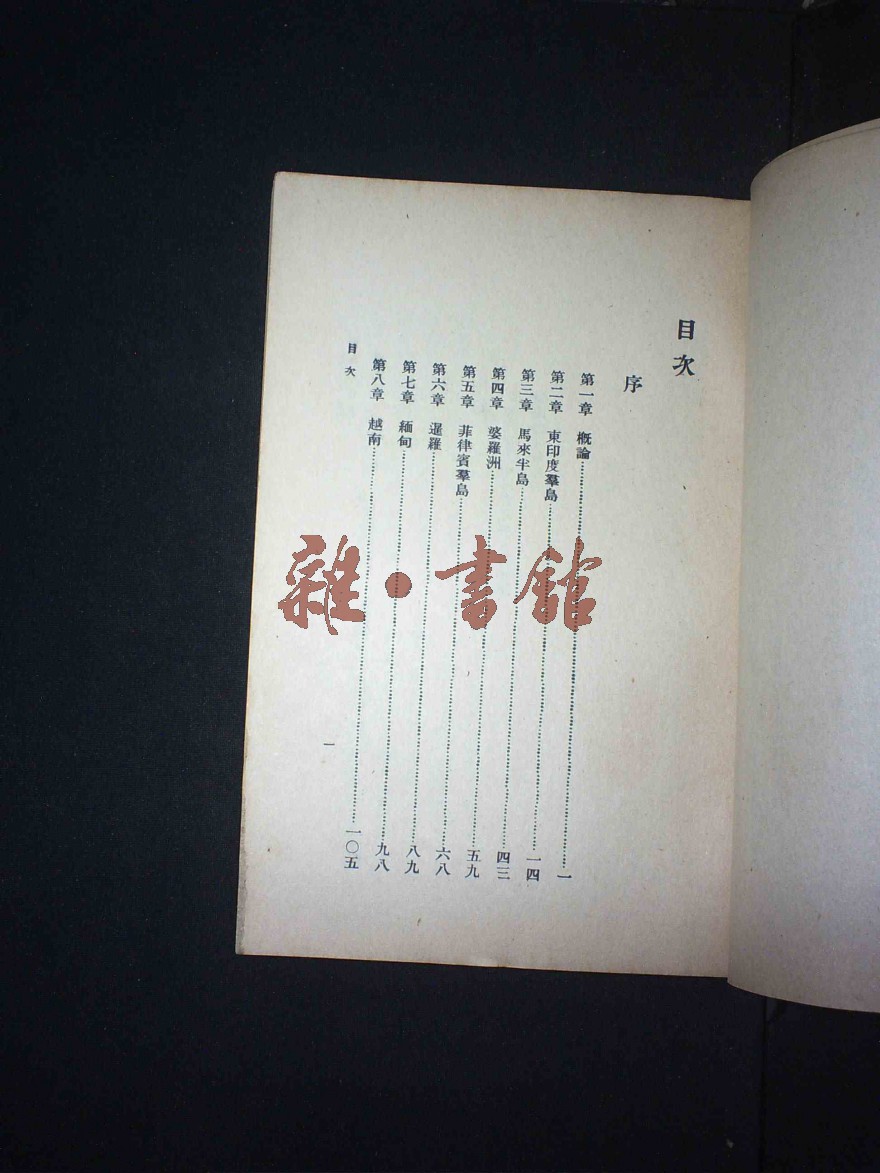 目次
序
第一章 概論……一
第二章 東印度羣島……一四
第三章 馬來半島……四三
第四章 婆羅洲……五九
第五章 菲律賓羣島……六八
第六章 暹羅……八九
第七章 緬甸……九八
第八章 越南……一〇五
目次
一
雜·書館